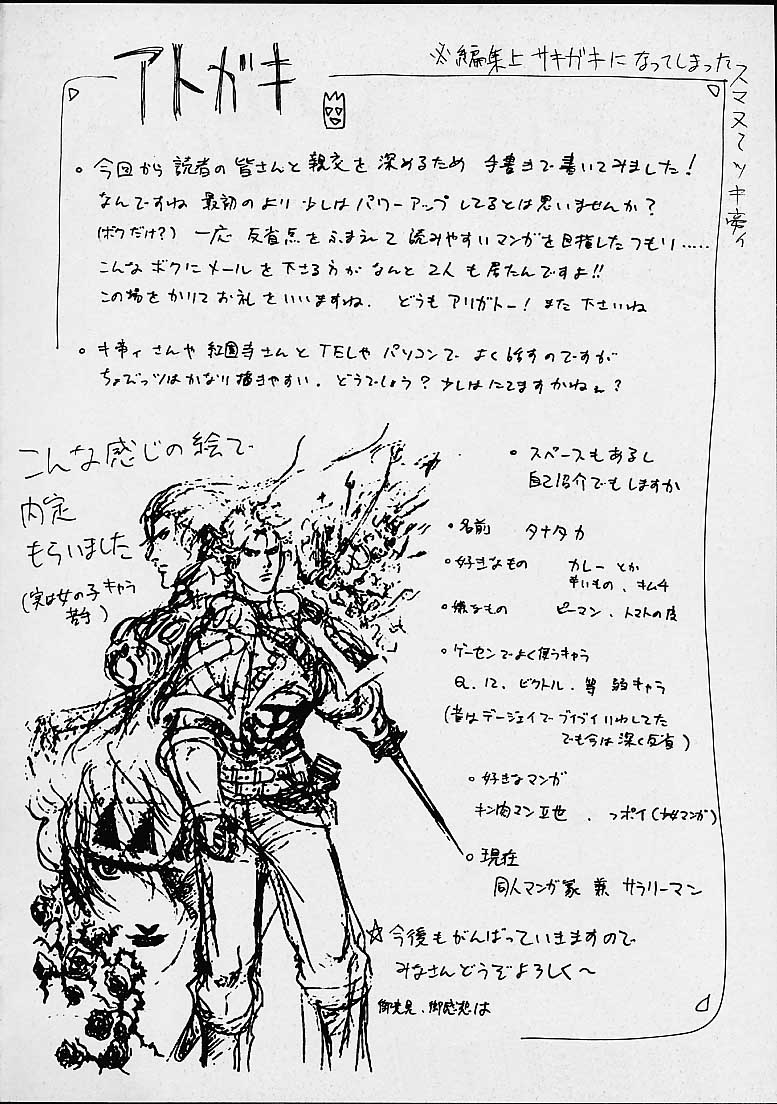 アトガキ
※編集上 サキガキになってしまった
スマヌ
。今回から読者の皆さんと親交を深めるため 手書きで書いてみました!
なんですね 最初のより少しはパワーアップしてるとは思いませんか?
(ボクだけ?) 一応 反省点をふまえて読みやすいマンガを目指したつもり.....
こんなボクにメールを下さる方がなんと2人も居たんですよ!!
この場をかりてお礼をいいますね. どうもアリガトー! また下さいね
さんや紅園寺さんとTELやパソコンでよく話すのですが
ちょびっツはかなり描きやすい. どうでしょう? 少しはにてますかねぇ?
こんな感じの絵で
内定
もらいました
(実は女の子キャラ
苦手)
。スペースもあるし
自己紹介でもしますか
。名前 タナタカ
。好きなもの カレーとか
辛いもの、キムチ
。嫌なもの ピーマン、トマトの皮
。ゲーセンでよく使うキャラ
Q、12、ビクトル、等 弱キャラ
(昔はデージェイでブイブイいわしてた
でも今は深く反省)
。好きなマンガ
キン肉マンⅡ世 、っポイ(少女マンガ)
。現在
同人マンガ家 兼 サラリーマン
☆今後もがんばっていきますので
みなさんどうぞよろしく〜
御意見、御感想は